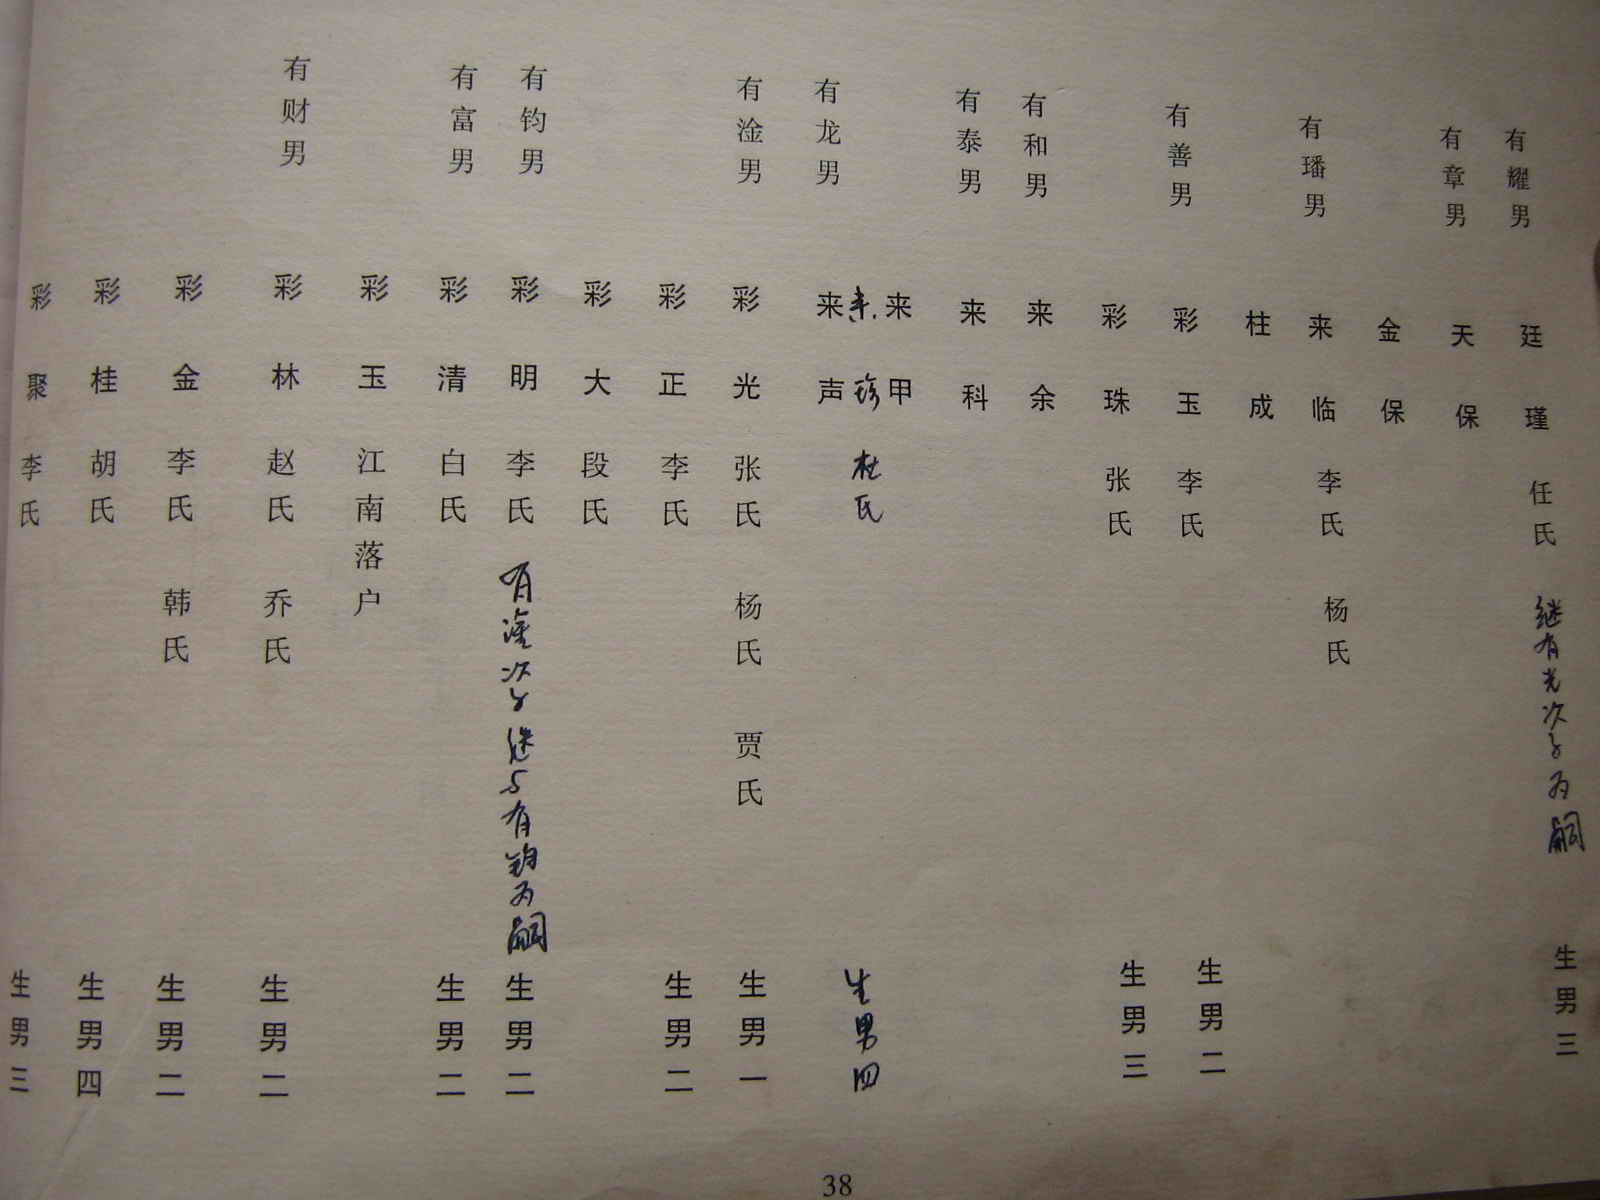 有耀男 廷瑾 任氏 继有光次子为嗣 生男三
有章男 天保
金保
有璠男 来临 李氏 杨氏
柱成
有善男 彩玉 李氏 生男二
彩珠 张氏 生男三
有和男 来余
有泰男 来科
来甲
来珍 杜氏 生男四
有龙男 来声
有淦男 彩光 张氏 杨氏 贾氏 生男一
彩正 李氏 生男二
彩大 段氏
有钧男 彩明 李氏 有淦次子继与有钧为嗣 生男二
有富男 彩清 白氏 生男二
彩玉 江南落户
有财男 彩林 赵氏 乔氏 生男二
彩金 李氏 韩氏 生男二
彩桂 胡氏 生男四
彩聚 李氏 生男三
38